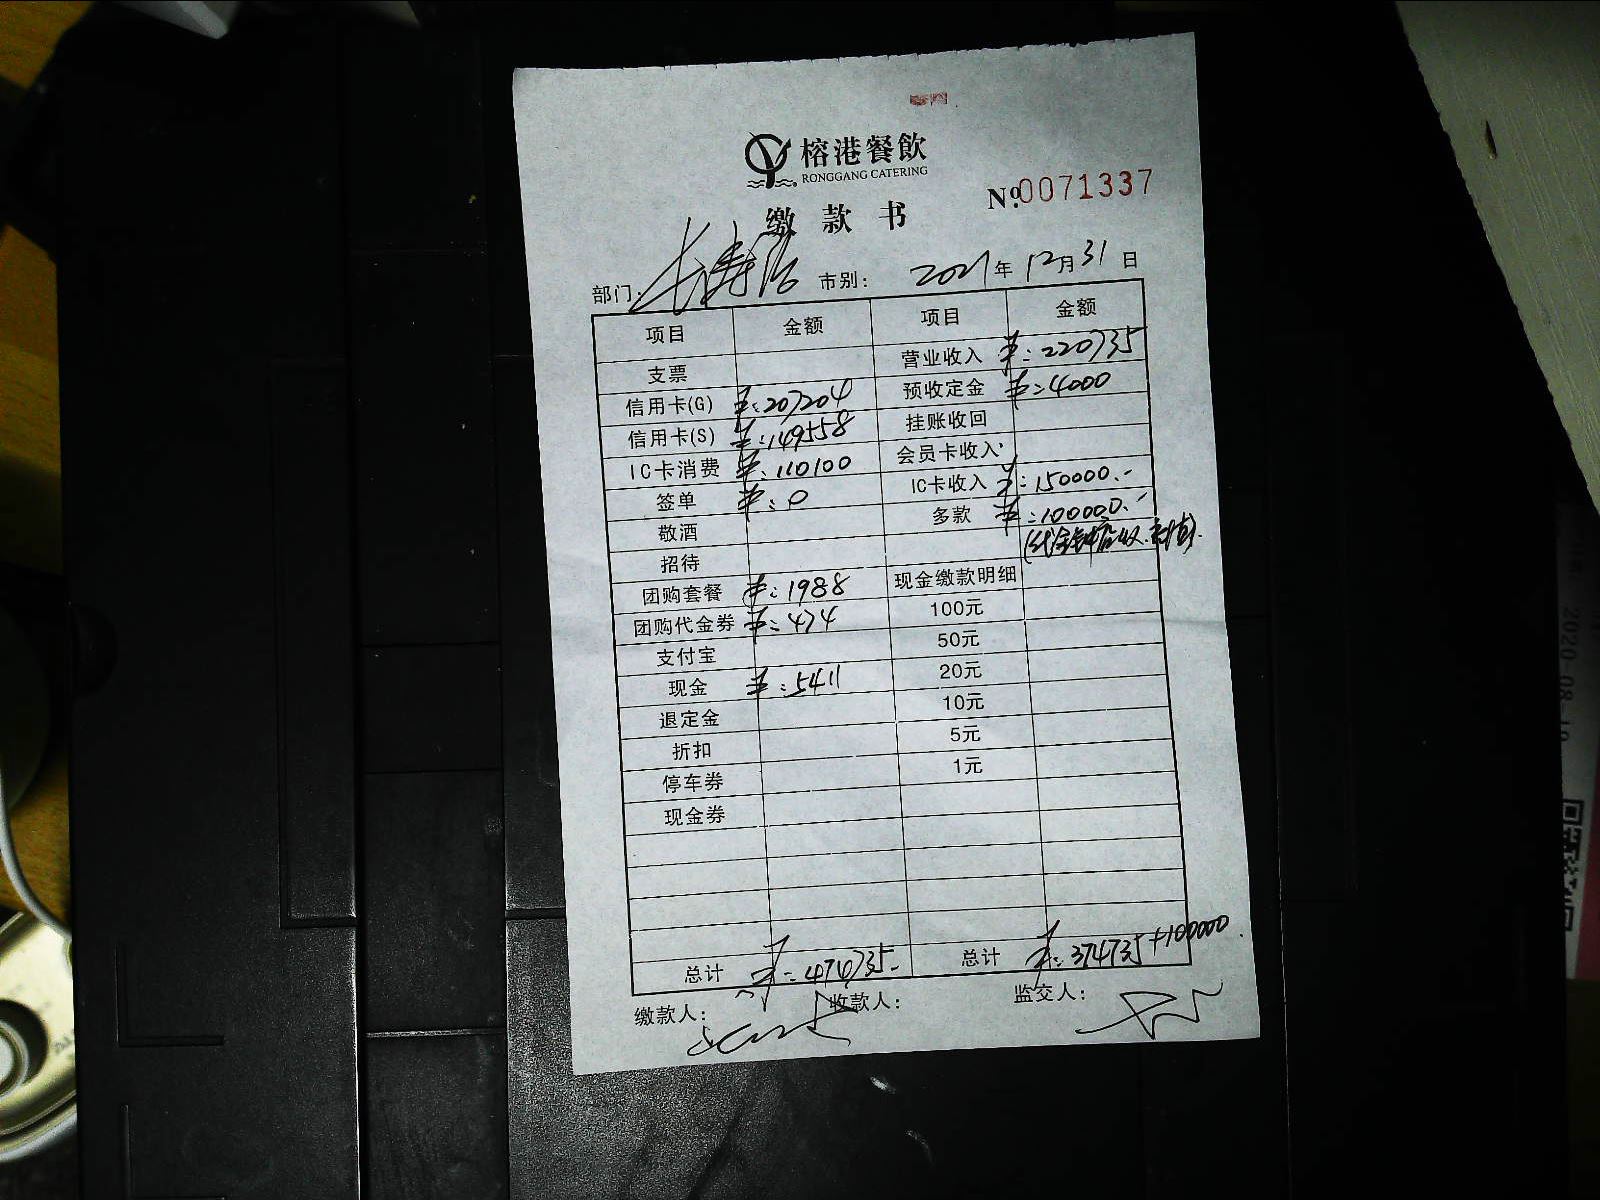 榕港餐飲
RONGGANG CATERING
№0071337
缴款书
部门: 长寿路 市别: 2021年12月31日
项目 金额 项目 金额
支票 营业收入 ¥:220735
信用卡(G) ¥:207204 预收定金 ¥:4000
信用卡(S) ¥:149558 挂账收回
IC卡消费 ¥:110100 会员卡收入
签单 ¥:0 IC卡收入 ¥:150000.-
敬酒 多款 ¥:100000.-
招待
团购套餐 ¥:1988 现金缴款明细
团购代金券 ¥:474 100元
支付宝 50元
现金 ¥:5411 20元
退定金 10元
折扣 5元
停车券 1元
现金券
总计 ¥:474735.- 总计 ¥:374735+100000
缴款人: 收款人: 监交人:
2020-08-10